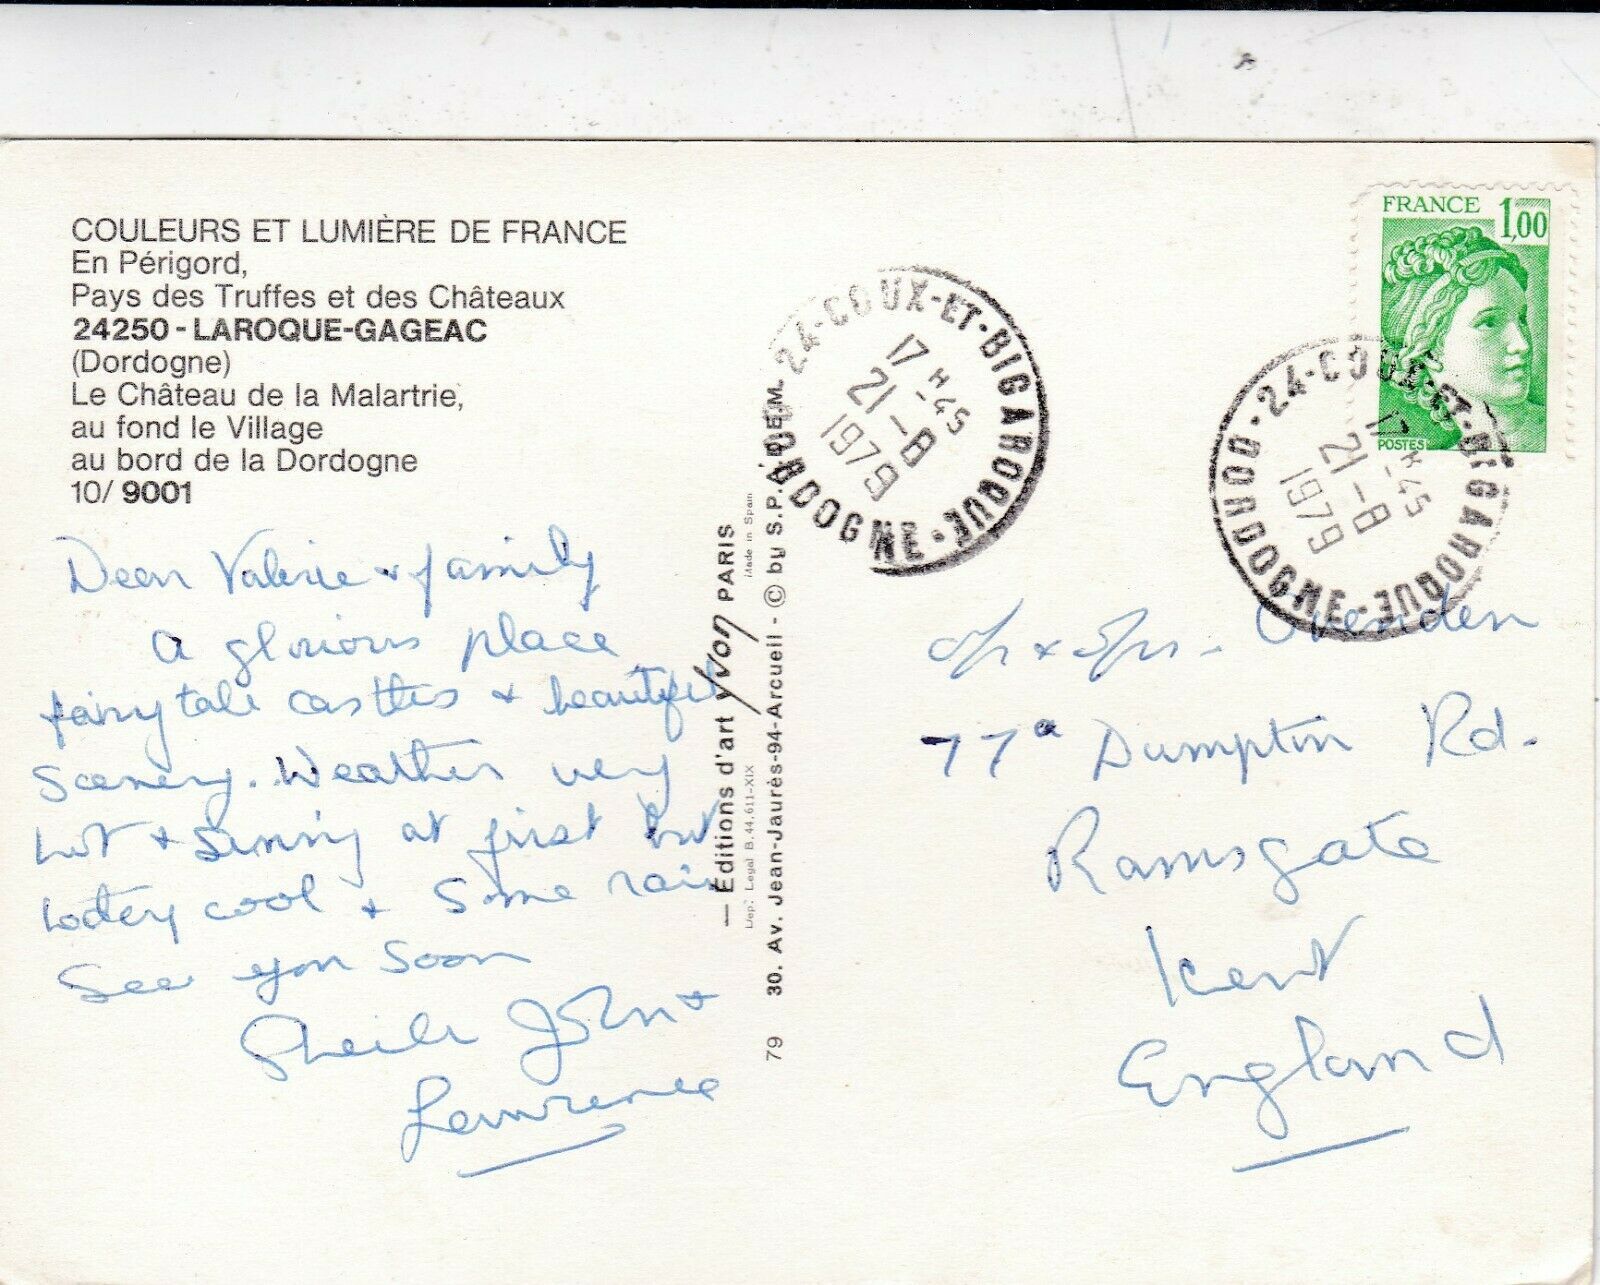 COULEURS ET LUMIÈRE DE FRANCE
En Périgord,
Pays des Truffes et des Châteaux
24250 - LAROQUE-GAGEAC
(Dordogne)
Le Château de la Malartrie,
au fond le Village
au bord de la Dordogne
10/ 9001
Dear Valerie & family
A glorious place
fairytale castles & beautiful
scenery. Weather very
hot & sunny at first but
today cool & some rain
See you soon
Sheila John &
Lawrence
— Éditions d'art yvon PARIS
Dép. Légal B. 44.611-XIX
Made in Spain
79 30. Av. Jean-Jaurès-94-Arcueil - © by S.P.A.D.E.M.
24-COUX-ET-BIGAROQUE · DORDOGNE
17 H -45
21 -8
1979
FRANCE 1,00
POSTES
24-COUX-ET-BIGAROQUE · DORDOGNE
17 H -45
21 -8
1979
Ovenden
77a Dumpton Rd.
Ramsgate
Kent
England